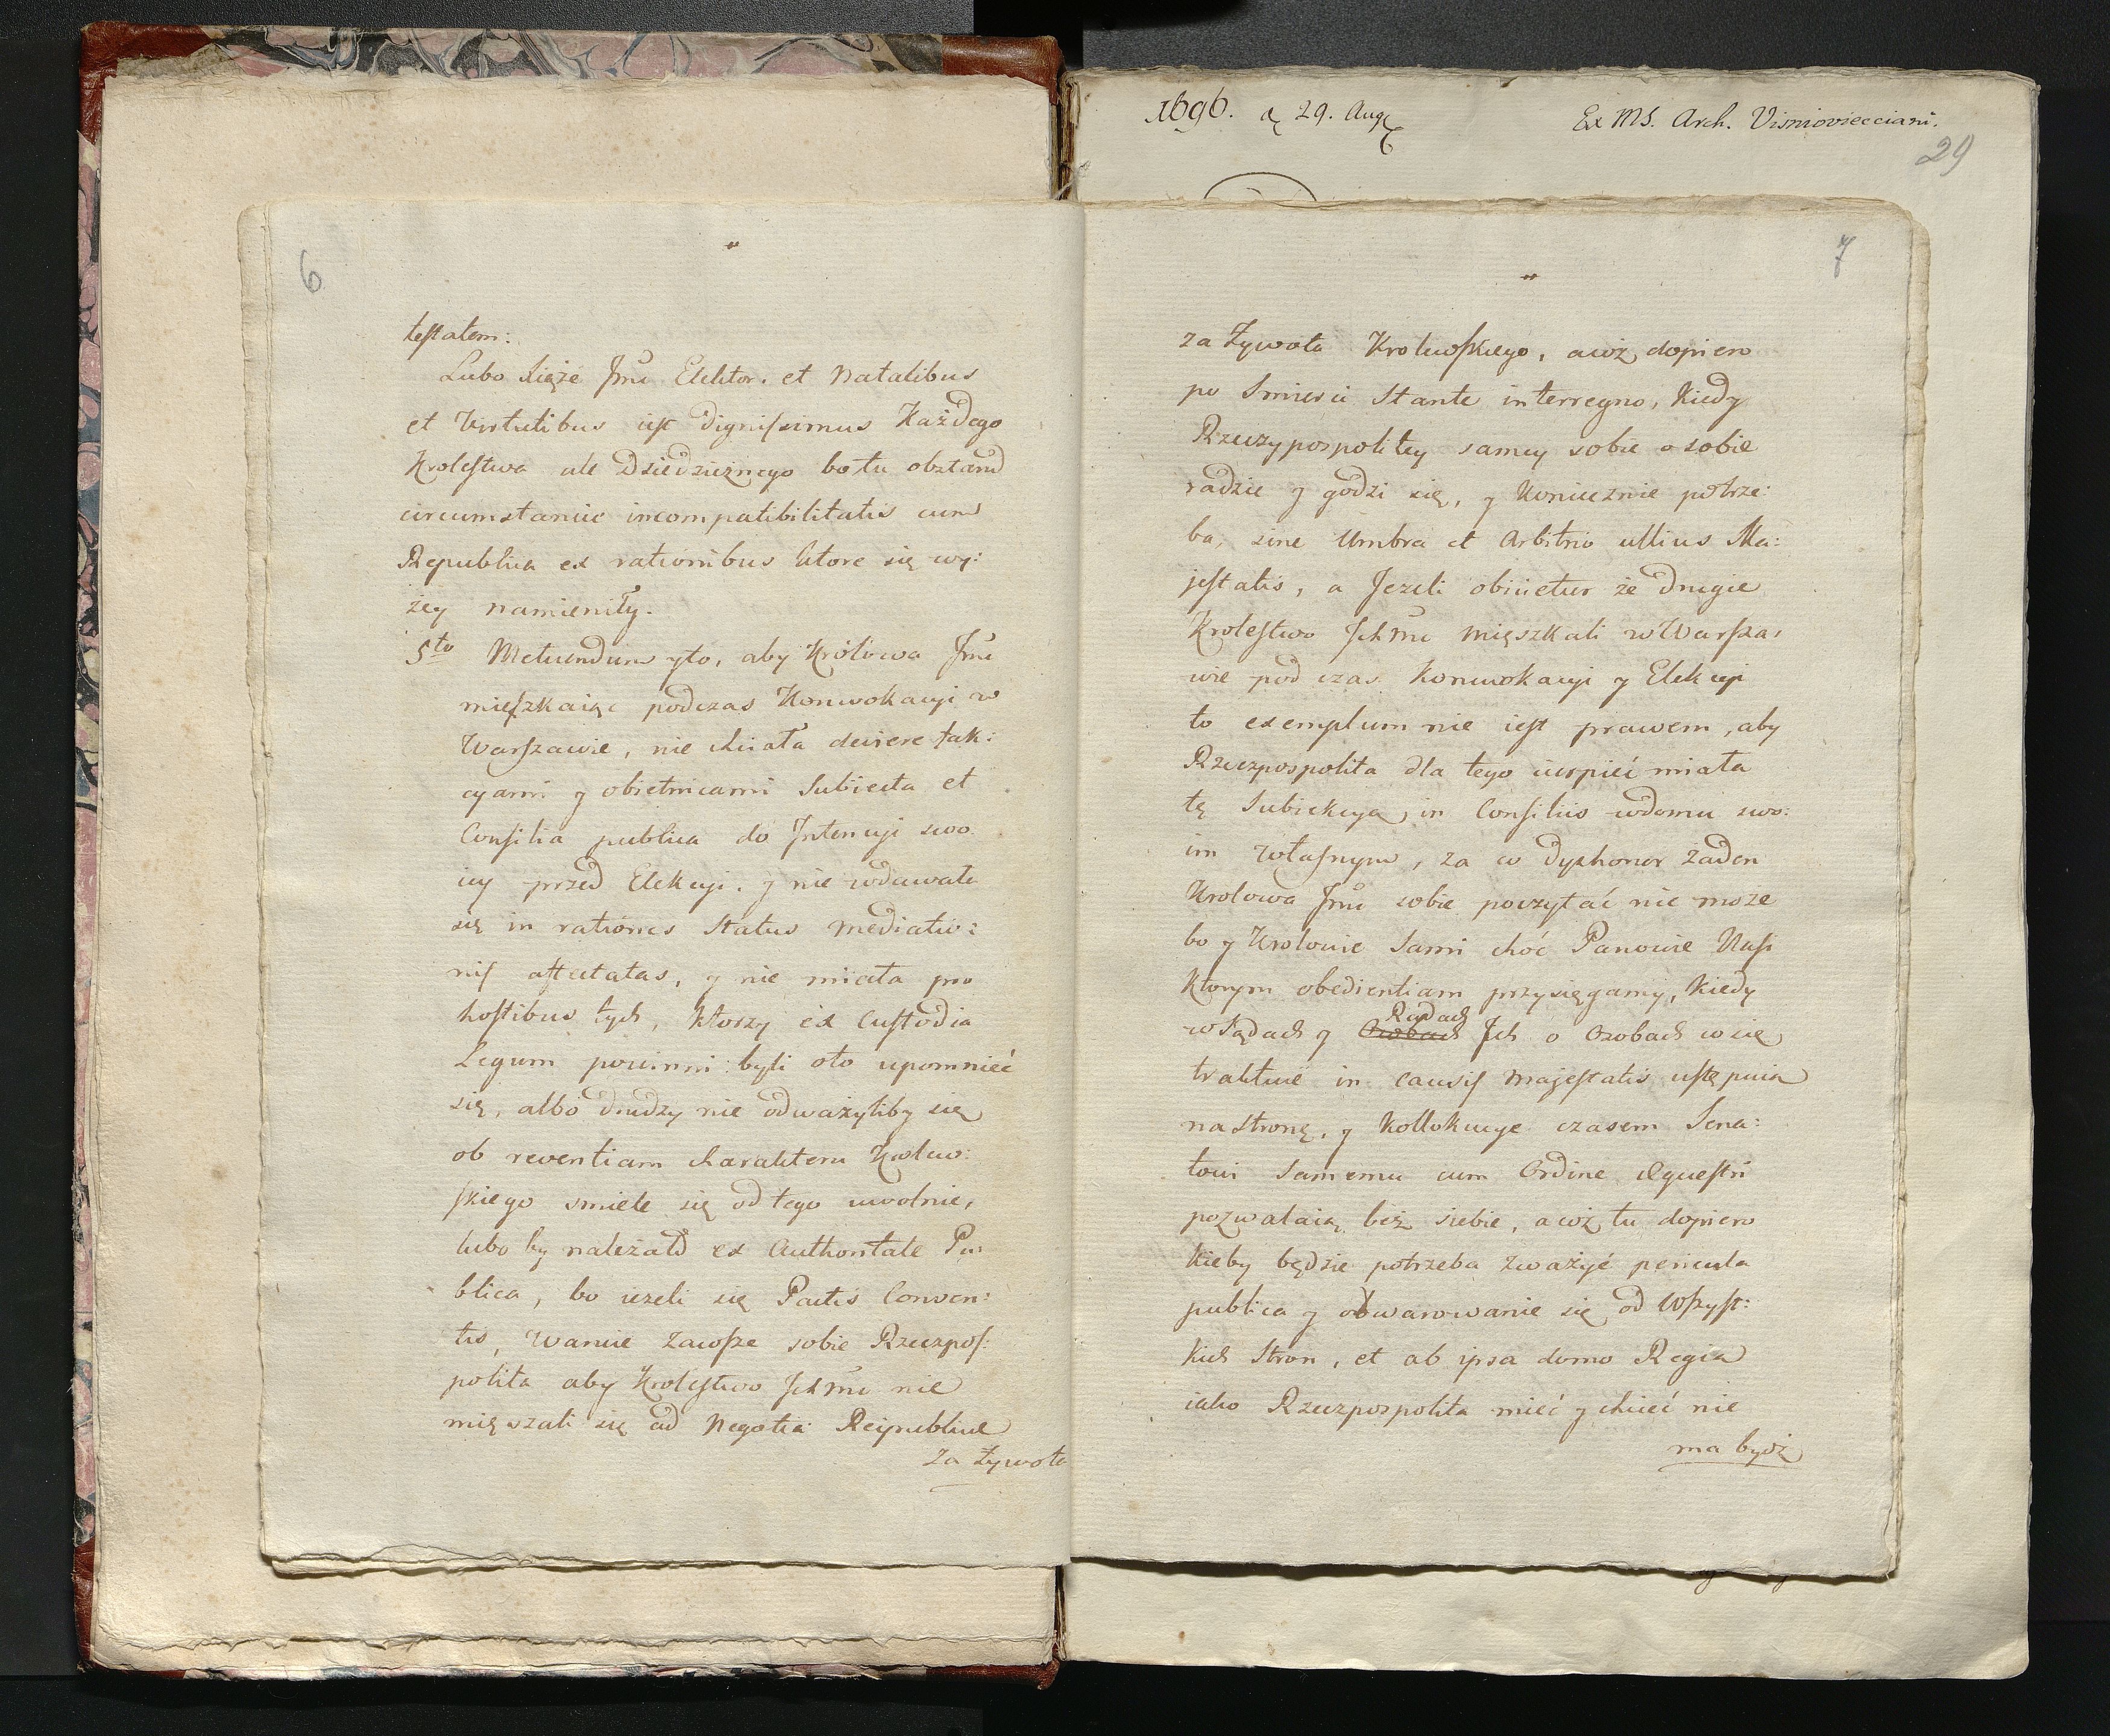 6
testatem:
Lubo Xiąże Jmć Elektor. et Natalibus
et Virtutibus iest dignissimus Każdego
Krolestwa ale Dziedzicznego bo tu obstand
circumstancie incompatibilitatis cum
Republica ex rationibus ktore się wy:
żey namieniły.
5to Metuendum yto, aby Królowa Jmć
mieszkaiąc podczas Konwokacyi w
Warszawie, nie chciała ducere fak:
cyami y obietnicami Subiecta et
Consilia publica do Intencyi swo
iey przed Elekcyi. y nie wdawała
się in rationes Status mediatio:
nis affectatas, y nie miała pro
hostibus tych, ktorzy ex Custodia
Legum powinni byli oto upomnieć
się, albo drudzy nie odważyliby się
ob reverentiam charakteru Krolew:
skiego smiele się od tego uwolnić,
lubo by należało ex Authoritate Pu:
blica, bo ieżeli się Pactis Conven:
tis, waruie zawsze sobie Rzeczpos:
polita aby Krolestwo Ichmć nie
mięszali się ad Negotia Reipublicae
za żywota
1696. d 29. Aug
Ex MS. Arch. Visnioviecciani.
29
7
za Żywota Krolewskiego, a coż dopiero
po Smierci Stante interregno, Kiedy
Rzeczypospolitey samey sobie o sobie
radzic y godzi się, y koniecznie potrze:
ba, sine Umbra et Arbitrio ullius Ma:
jestatis, a Jezeli obiicietur że drugie
Krolestwo Ichmć mięszkali w Warsza:
wie pod czas Konwokacyi y Elekcyi
to exemplum nie iest prawem, aby
Rzeczpospolita dla tego cierpieć miała
tę Subiekcyą in Consiliis w domu swo:
im własnym, za co Dyshonor żaden
Krolowa Jmć sobie poczytać nie może
bo y Krolowie Sami choć Panowie Nasi
Ktorym obedientiam przysięgamy, Kiedy
w Sądach y Osobach Radach Ich o Osobach wcię
traktuie in causis Majestatis ustępuią
na stronę, y Kollokucye czasem Sena:
towi Samemu cum Ordine Equestri
pozwalaią bez siebie, a coż tu dopiero
Kieby będzie potrzeba zważyć pericula
publica y obwarowanie się od Wszyst:
kich Stron, et ab ipsa domo Regia
iako Rzeczpospolita mieć y chcieć nie
ma bydź